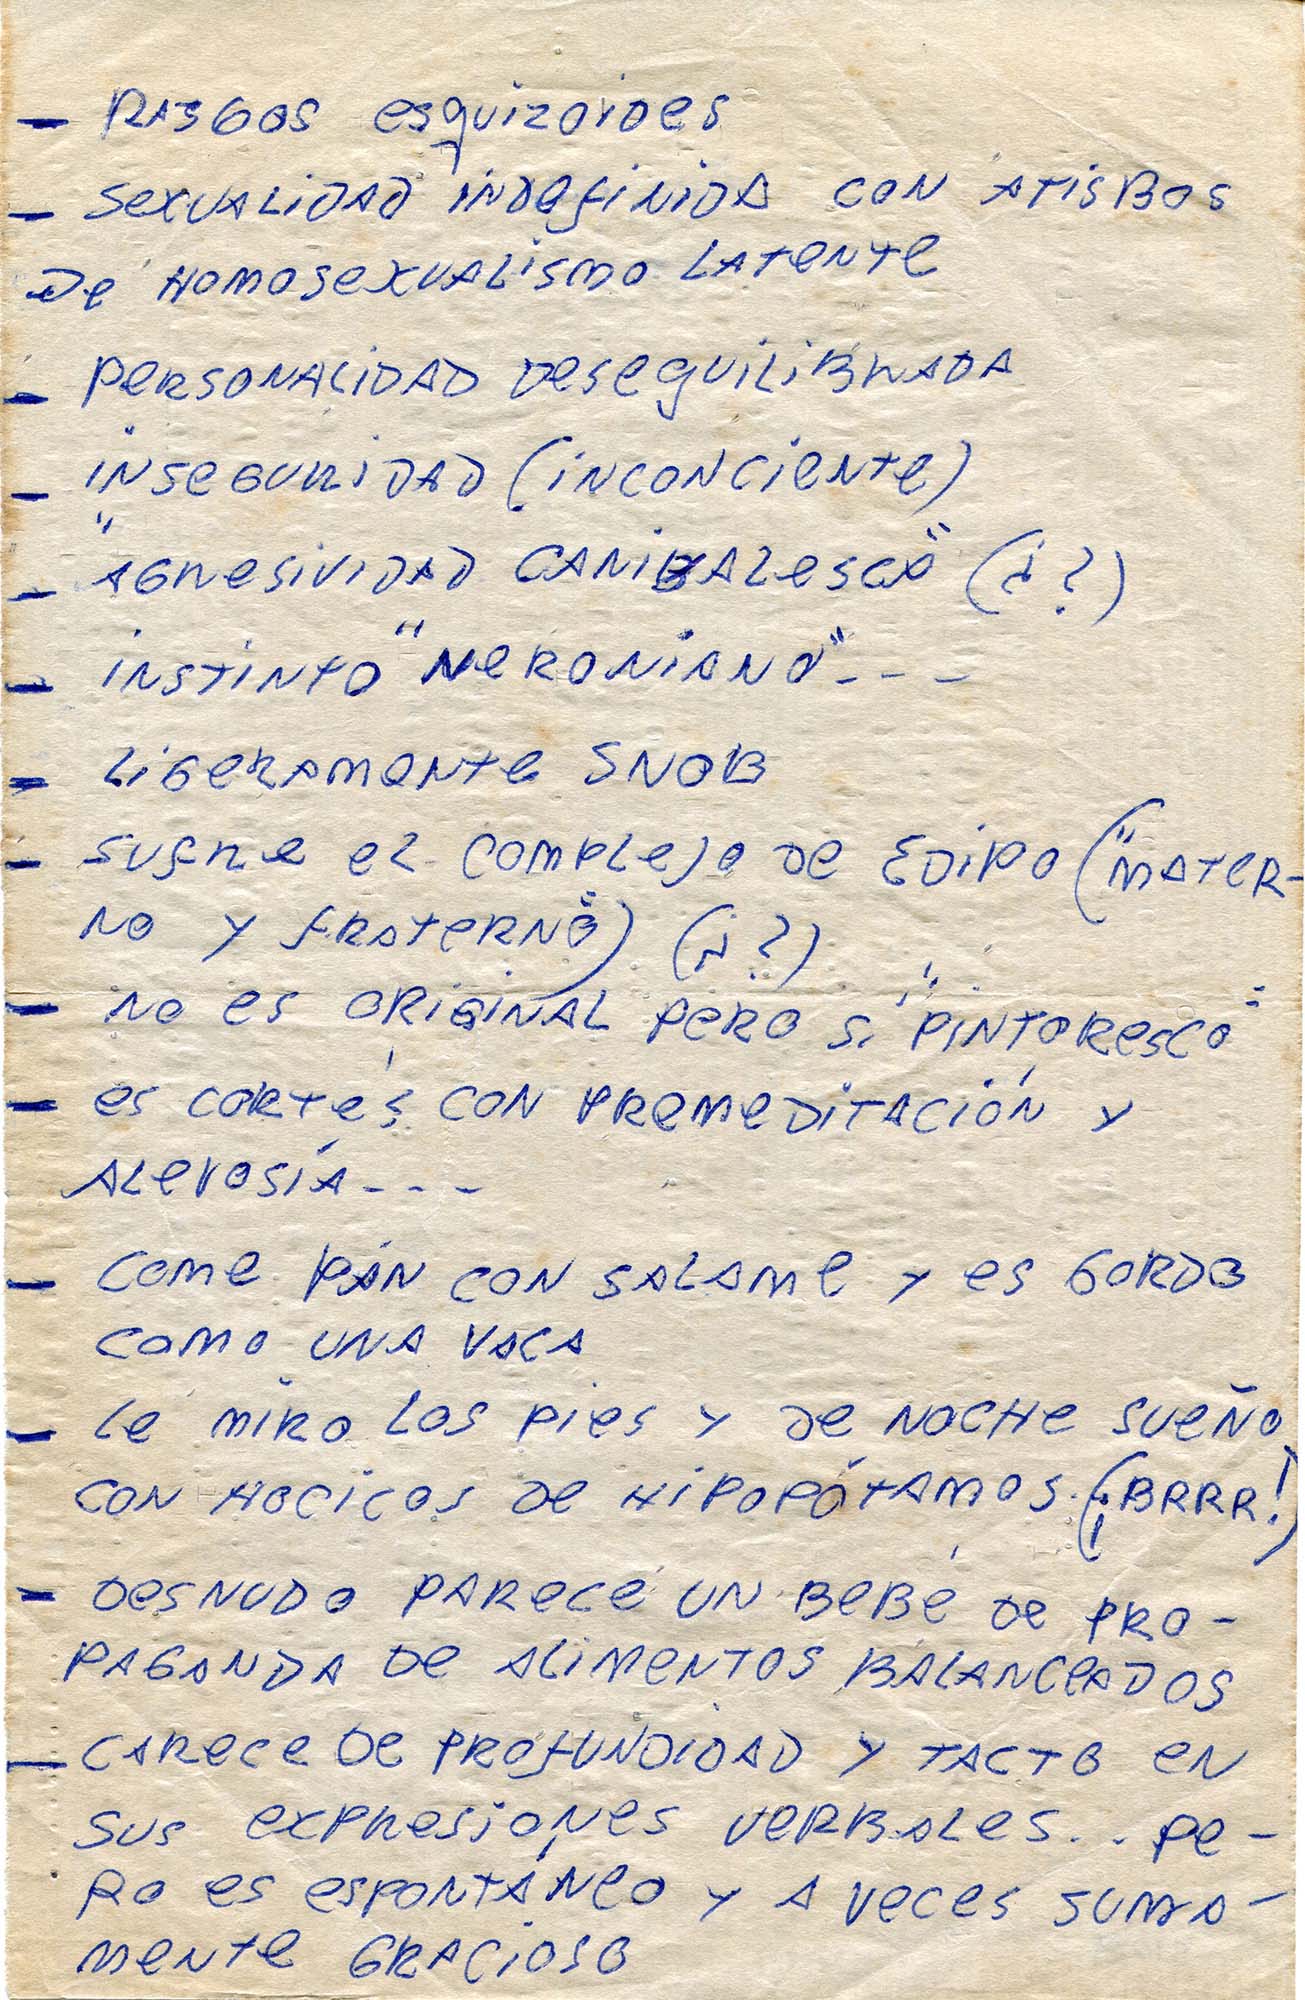 - RASGOS esquizoides
- sexualidad indefinida con atisbos
de homosexualismo latente
- personalidad desequilibrada
- inseguridad (inconciente)
- "agresividad canibalesca" (¿?)
- instinto "neroniano" - - -
- ligeramente snob
- sufre el complejo de Edipo ("mater-
no y fraterno") (¿?)
- no es original pero si "pintoresco"
- es cortés con premeditación y
alevosía - - -
- come pán con salame y es gordo
como una vaca
- le miro los pies y de noche sueño
con hocicos de hipopótamos. (¡BRRR!)
- desnudo parece un bebé de pro-
paganda de alimentos balanceados
- carece de profundidad y tacto en
sus expresiones verbales.. pe-
ro es espontáneo y a veces suma-
mente gracioso